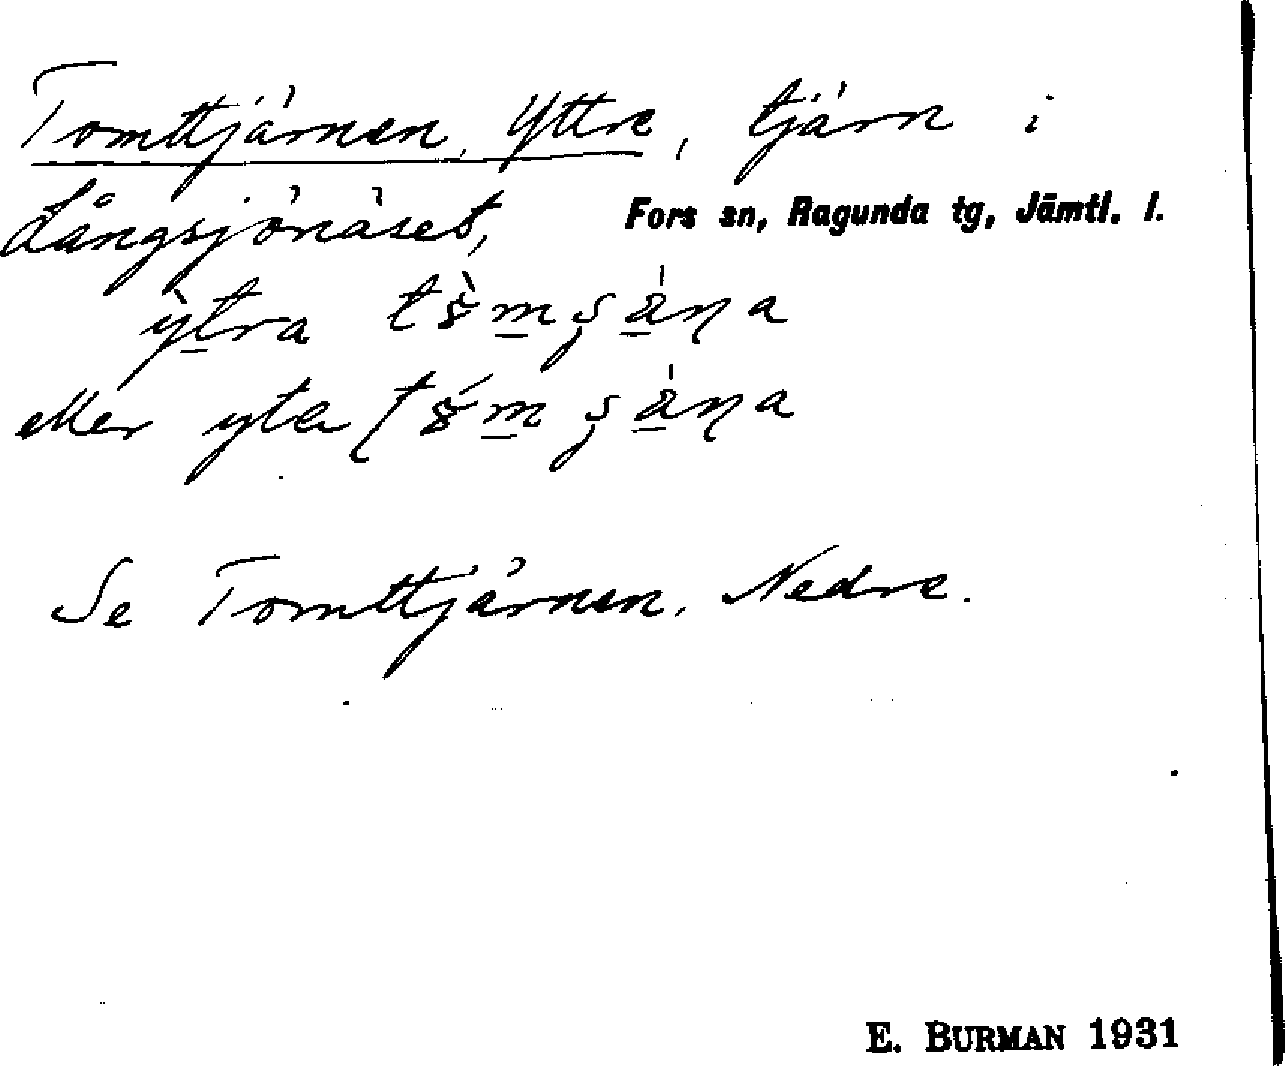 Tomttjärnen, Yttre, tjärn i
Långsjönäset, Fors sn, Ragunda tg, Jämtl. l.
ỳtra
eller yta
Se Tomttjärnen, Nedre.
E. BURMAN 1931